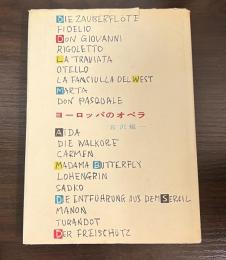 DIE ZAUBERFLÖTE
FIDELIO
DON GIOVANNI
RIGOLETTO
LA TRAVIATA
OTELLO
LA FANCIULLA DEL WEST
MARTA
DON PASQUALE
ヨーロッパのオペラ
AIDA
DIE WALKÜRE
CARMEN
MADAMA BUTTERFLY
LOHENGRIN
SADKO
DIE ENTFÜHRUNG AUS DEM SERAIL
MANON
TURANDOT
DER FREISCHÜTZ